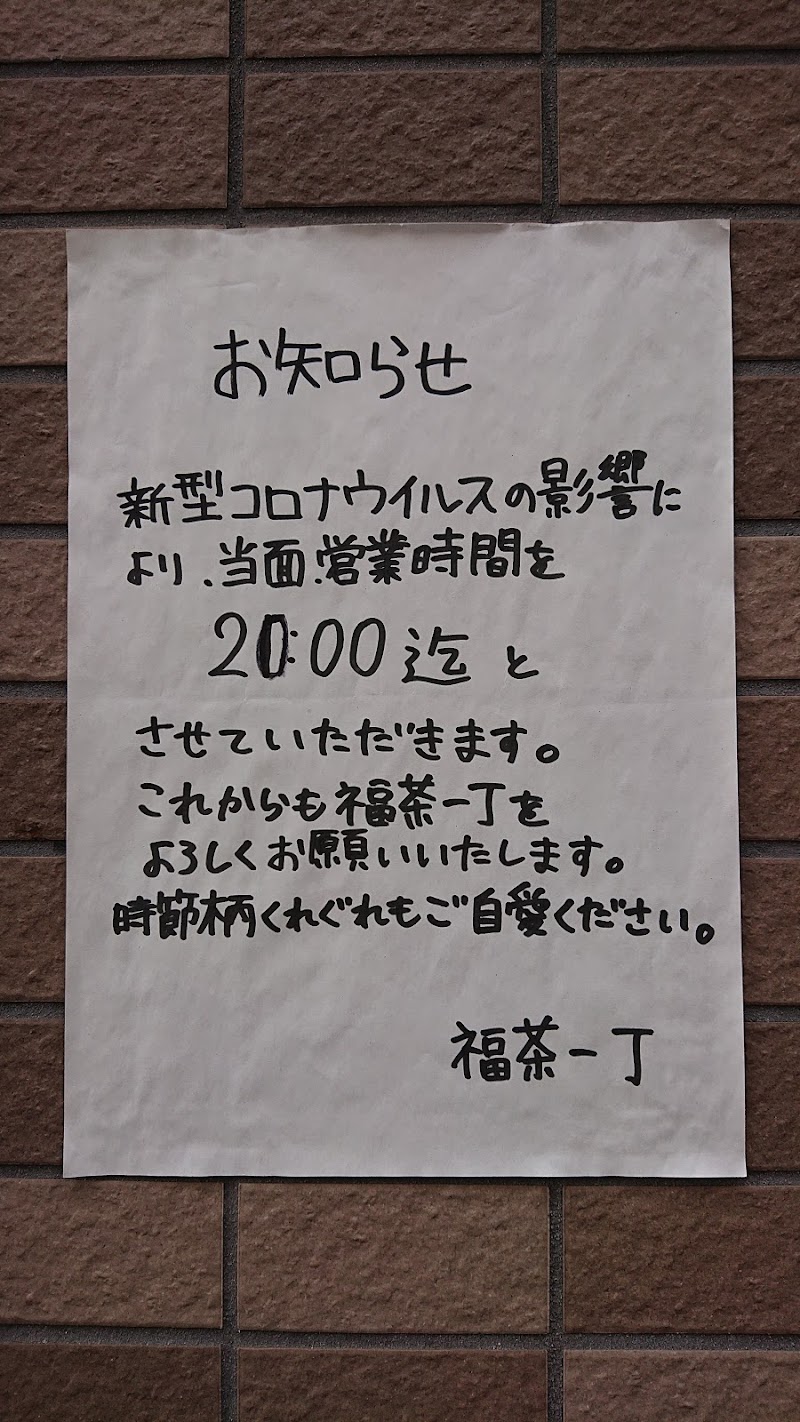 お知らせ
新型コロナウイルスの影響に
より、当面、営業時間を
20:00迄と
させていただきます。
これからも福茶一丁を
よろしくお願いいたします。
時節柄くれぐれもご自愛ください。
福茶一丁